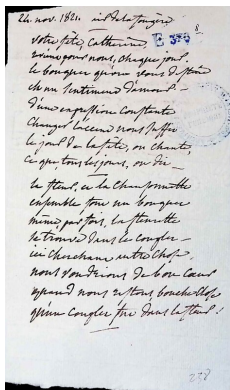 24. nov. 1821. air de la fougère
E 378
8
votre fête, Catherine,
vaine pour nous, chaque jour
le bouquet qu'on vous destine
est un sentiment d'amour -
d'une expression constante
changer l'accent nous suffit
le jour de la fête, on chante,
ce que tous les jours, on dit -
la fleur, et la chansonnette
ensemble font un bouquet
même par fois, la fleurette
se trouve dans le couplet -
ici cherchant autre chose
nous voudrions de bon cœur
quand nous restons bouche close
qu'un couplet fut dans la fleur.
238